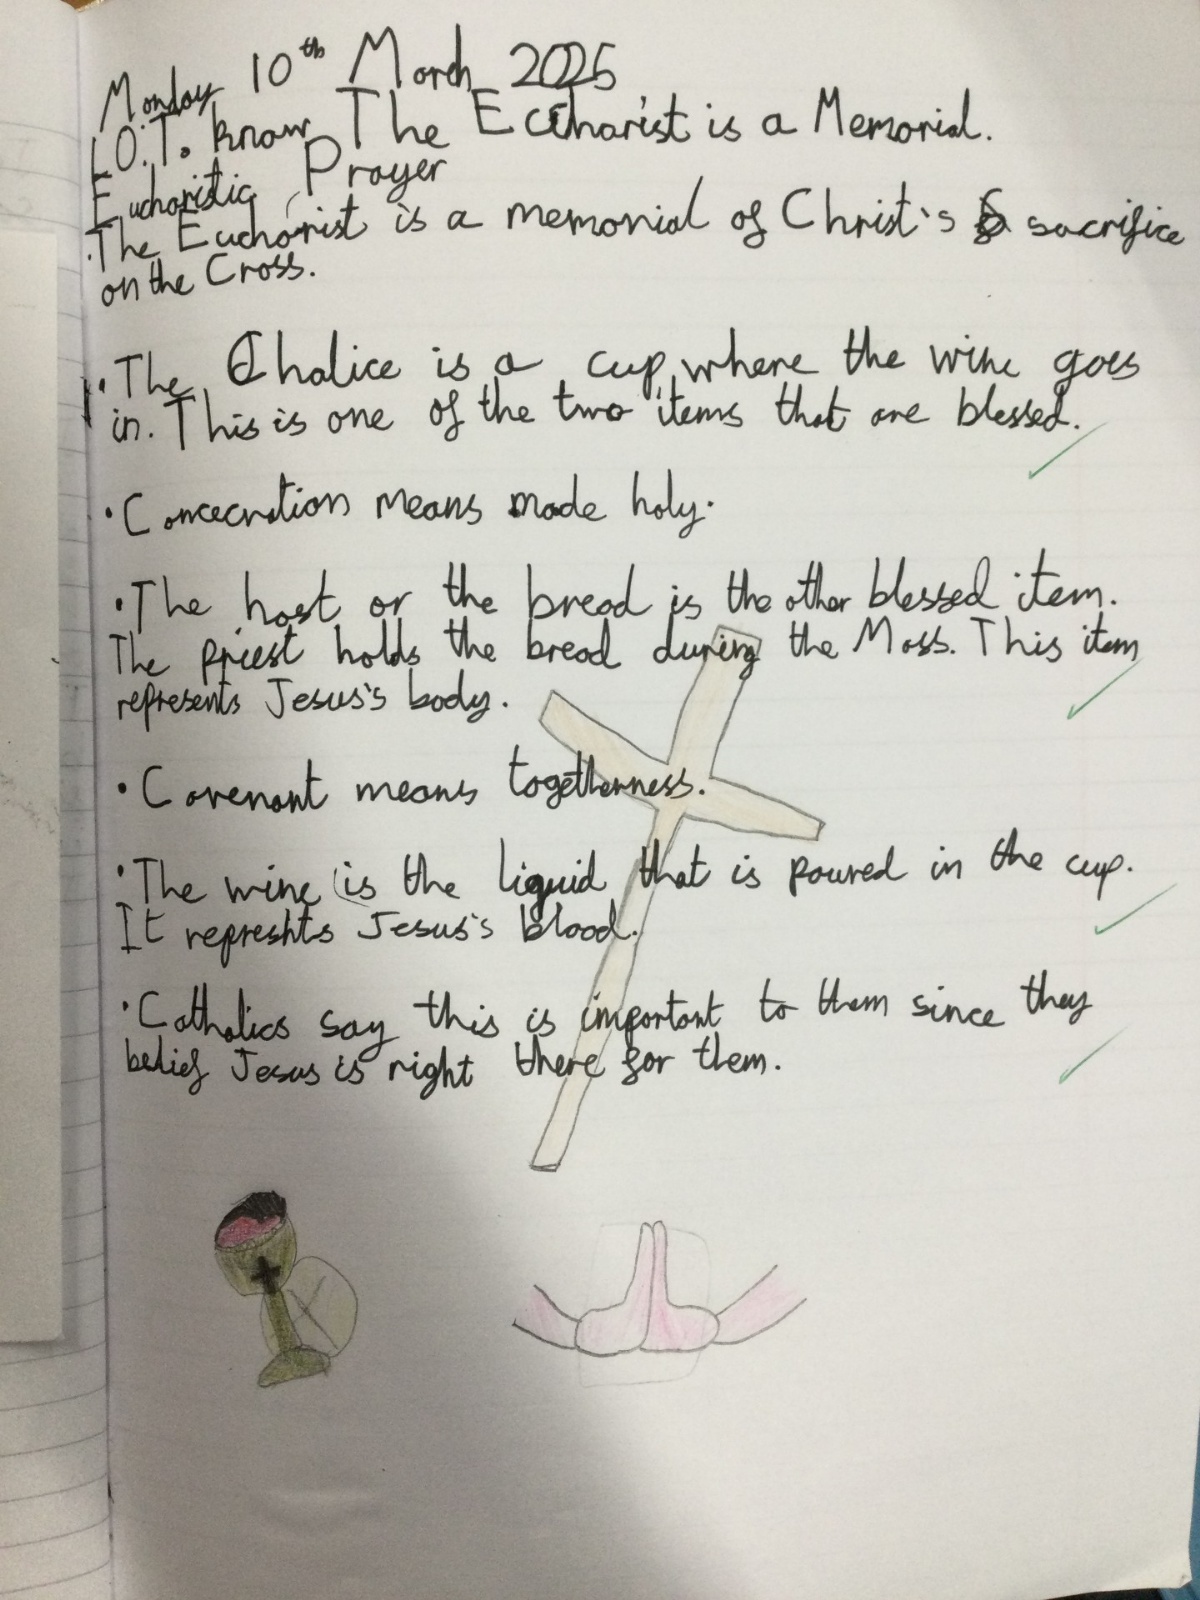 Monday 10th March 2025
L.O.T. know The Eucharist is a Memorial.
Eucharistic Prayer
.The Eucharist is a memorial of Christ's sacrifice
on the Cross.
• The Chalice is a cup where the wine goes
in. This is one of the two items that are blessed.
• Concecration means made holy.
• The host or the bread is the other blessed item.
The priest holds the bread during the Mass. This item
represents Jesus's body.
• Covenant means togetherness.
• The wine is the liquid that is poured in the cup.
It represhts Jesus's blood.
• Catholics say this is important to them since they
belief Jesus is right there for them.